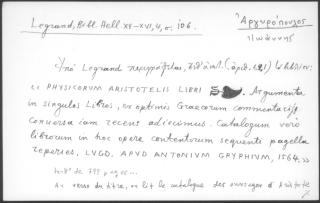 Legrand, Bibl. Hell. XV-XVI, 4, σ. 106.
Ἀργυρόπουλος
Ἰωάννης
Ὑπὸ Legrand περιγράφεται,
« PHYSICORUM ARISTOTELIS LIBRI Argumenta
in singulos Libros, ex optimis Graecorum commentarijs
conversa iam recens adiecimus. Catalogum verò
librorum in hoc opere contentorum sequenti pagella
reperies, LUGD. APUD ANTONIUM GRYPHIUM, 1564. »
In-8° de 799 pages ...
Au verso du titre, on lit le catalogue des ouvrages d'Aristote